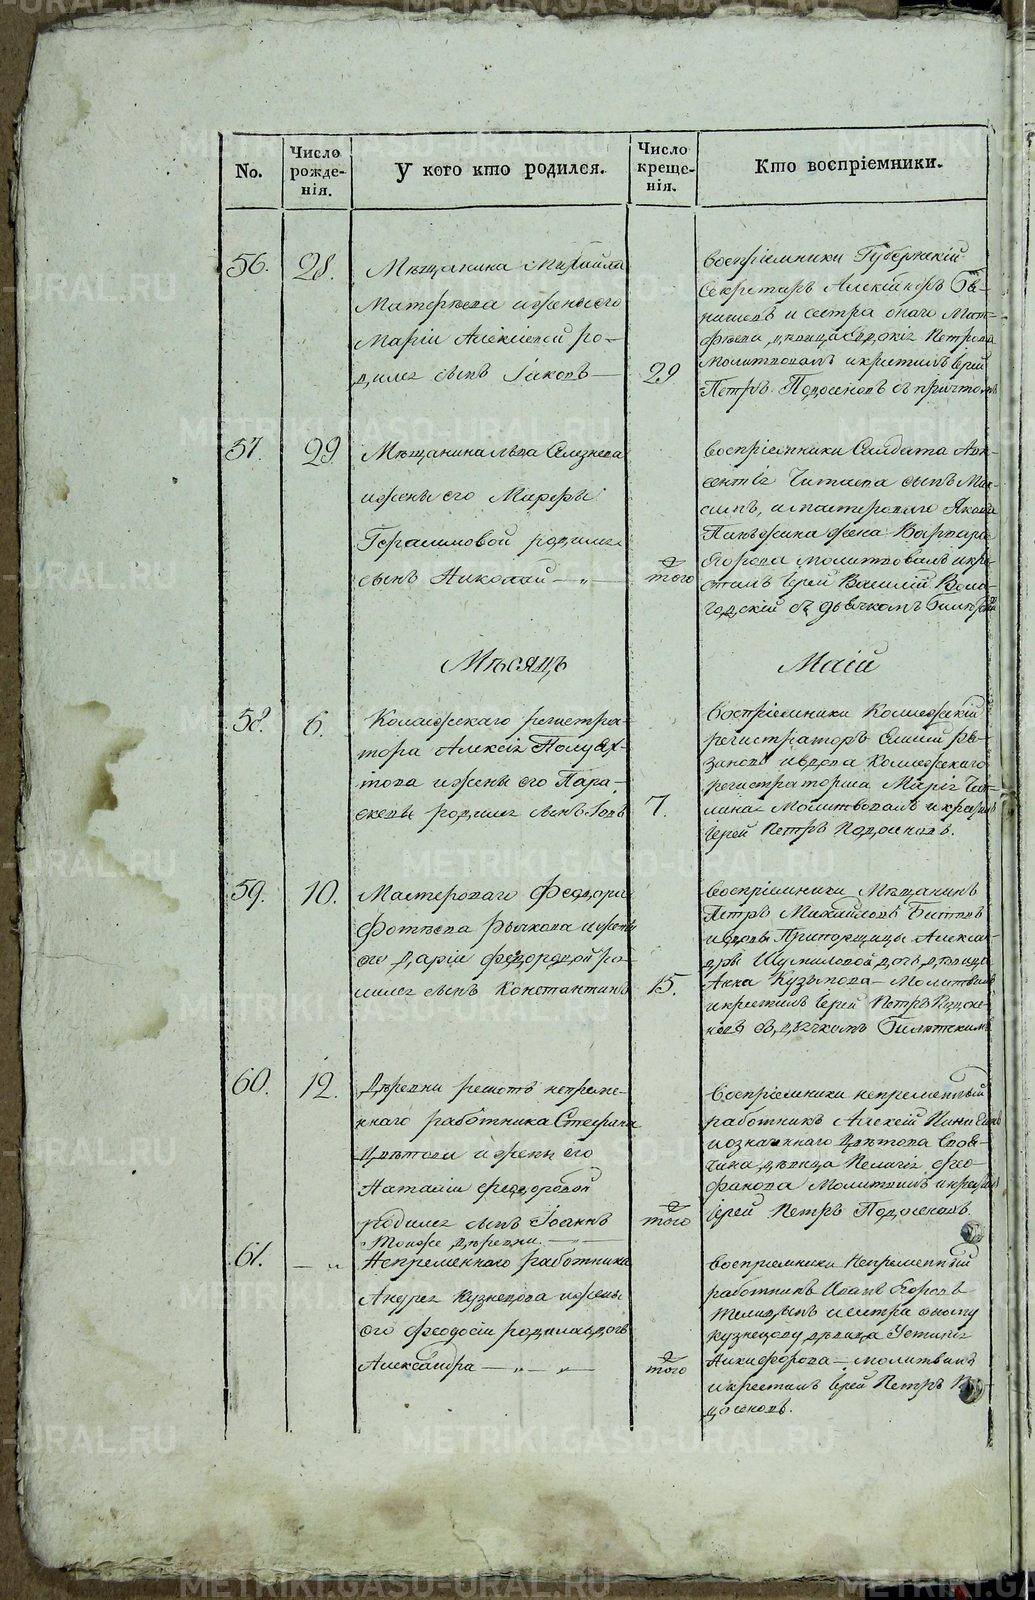 No.
Число рожде-
нія.
У кого кто родился.
Число креще-
нія.
Кто воспріемники.
56.
28.
Мѣщанина Михайла
Матфѣева и жены его
Маріи Алексіевой ро-
дился сынъ Іаковъ —
29
воспріемники Губернскій
Секретарь Алексій
и сестра онаго Мат-
фѣева дѣвица Евдокія Петрова
Молитвовалъ и крестилъ Іерей
Петръ Подосеновъ съ причтомъ
57.
29.
Мѣщанина Льва Селезнева
и жены его Марфы
Герасимовой родился
сынъ Николай — „ —
того
воспріемники Салдата
сынъ Мак-
симъ, и мастероваго Якова
жена Варвара
Егорова молитвовалъ и кре-
стилъ Іерей Василій Воло-
годскій съ дьячкомъ
Мѣсяцъ
Маій
58.
6.
Коллежскаго регистра-
тора Алексія Полуех-
това и жены его Пара-
скевы родился сынъ Іовъ
7.
Воспріемники Коллежскій
регистраторъ
и вдова Коллежскаго
регистраторша Марія
Молитвовалъ и крестилъ
Іерей Петръ Подосеновъ.
59.
10.
Мастероваго Феодора
Фотѣева Рычкова и жены
его Даріи Федоровой ро-
дился сынъ Константинъ
15.
воспріемники Мѣщанинъ
Петръ Михайловъ
и вдовы Алексан-
дры Шумиловой дочь дѣвица
Анна Кузьмова — Молитвовалъ
и крестилъ Іерей Петръ Подосе-
новъ съ дьячкомъ
60.
12.
Деревни решотъ непреме-
ннаго работника Стефана
Цвѣтова и жены его
Наталіи Феодоровой
родился сынъ Іоаннъ
того
воспріемники непременный
работникъ Алексій
и означеннаго Цвѣтова
дѣвица Пелагія Фео-
фанова Молитвовалъ и крестилъ
Іерей Петръ Подосеновъ.
61.
— „
Тоиже деревни. —
Непременнаго работника
Андрея Кузнецова и жены
его Феодосіи родилась дочь
Александра — „ — „
того
воспріемники Непременный
работникъ Иванъ Егоровъ
и сестра оному
Кузнецову дѣвица Устинія
Никифорова — молитвовалъ
и крестилъ Іерей Петръ По-
досеновъ.
METRIKI.GASO-URAL.RU